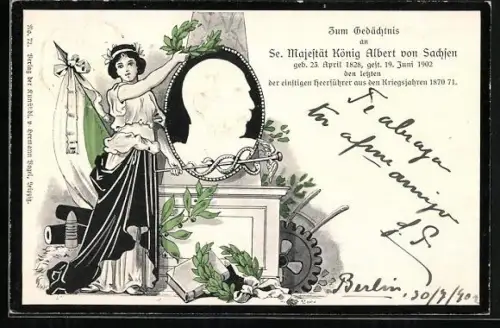 Zum Gedächtnis
an
Se. Majestät König Albert von Sachsen
geb. 23. April 1828, gest. 19. Juni 1902
den letzten
der einstigen Heerführer aus den Kriegsjahren 1870 71.
Te abraza
tu afmo amigo
Berlin 30/7/90
No. 71. Verlag der Kunsthdl. v. Hermann Vogel, Leipzig.